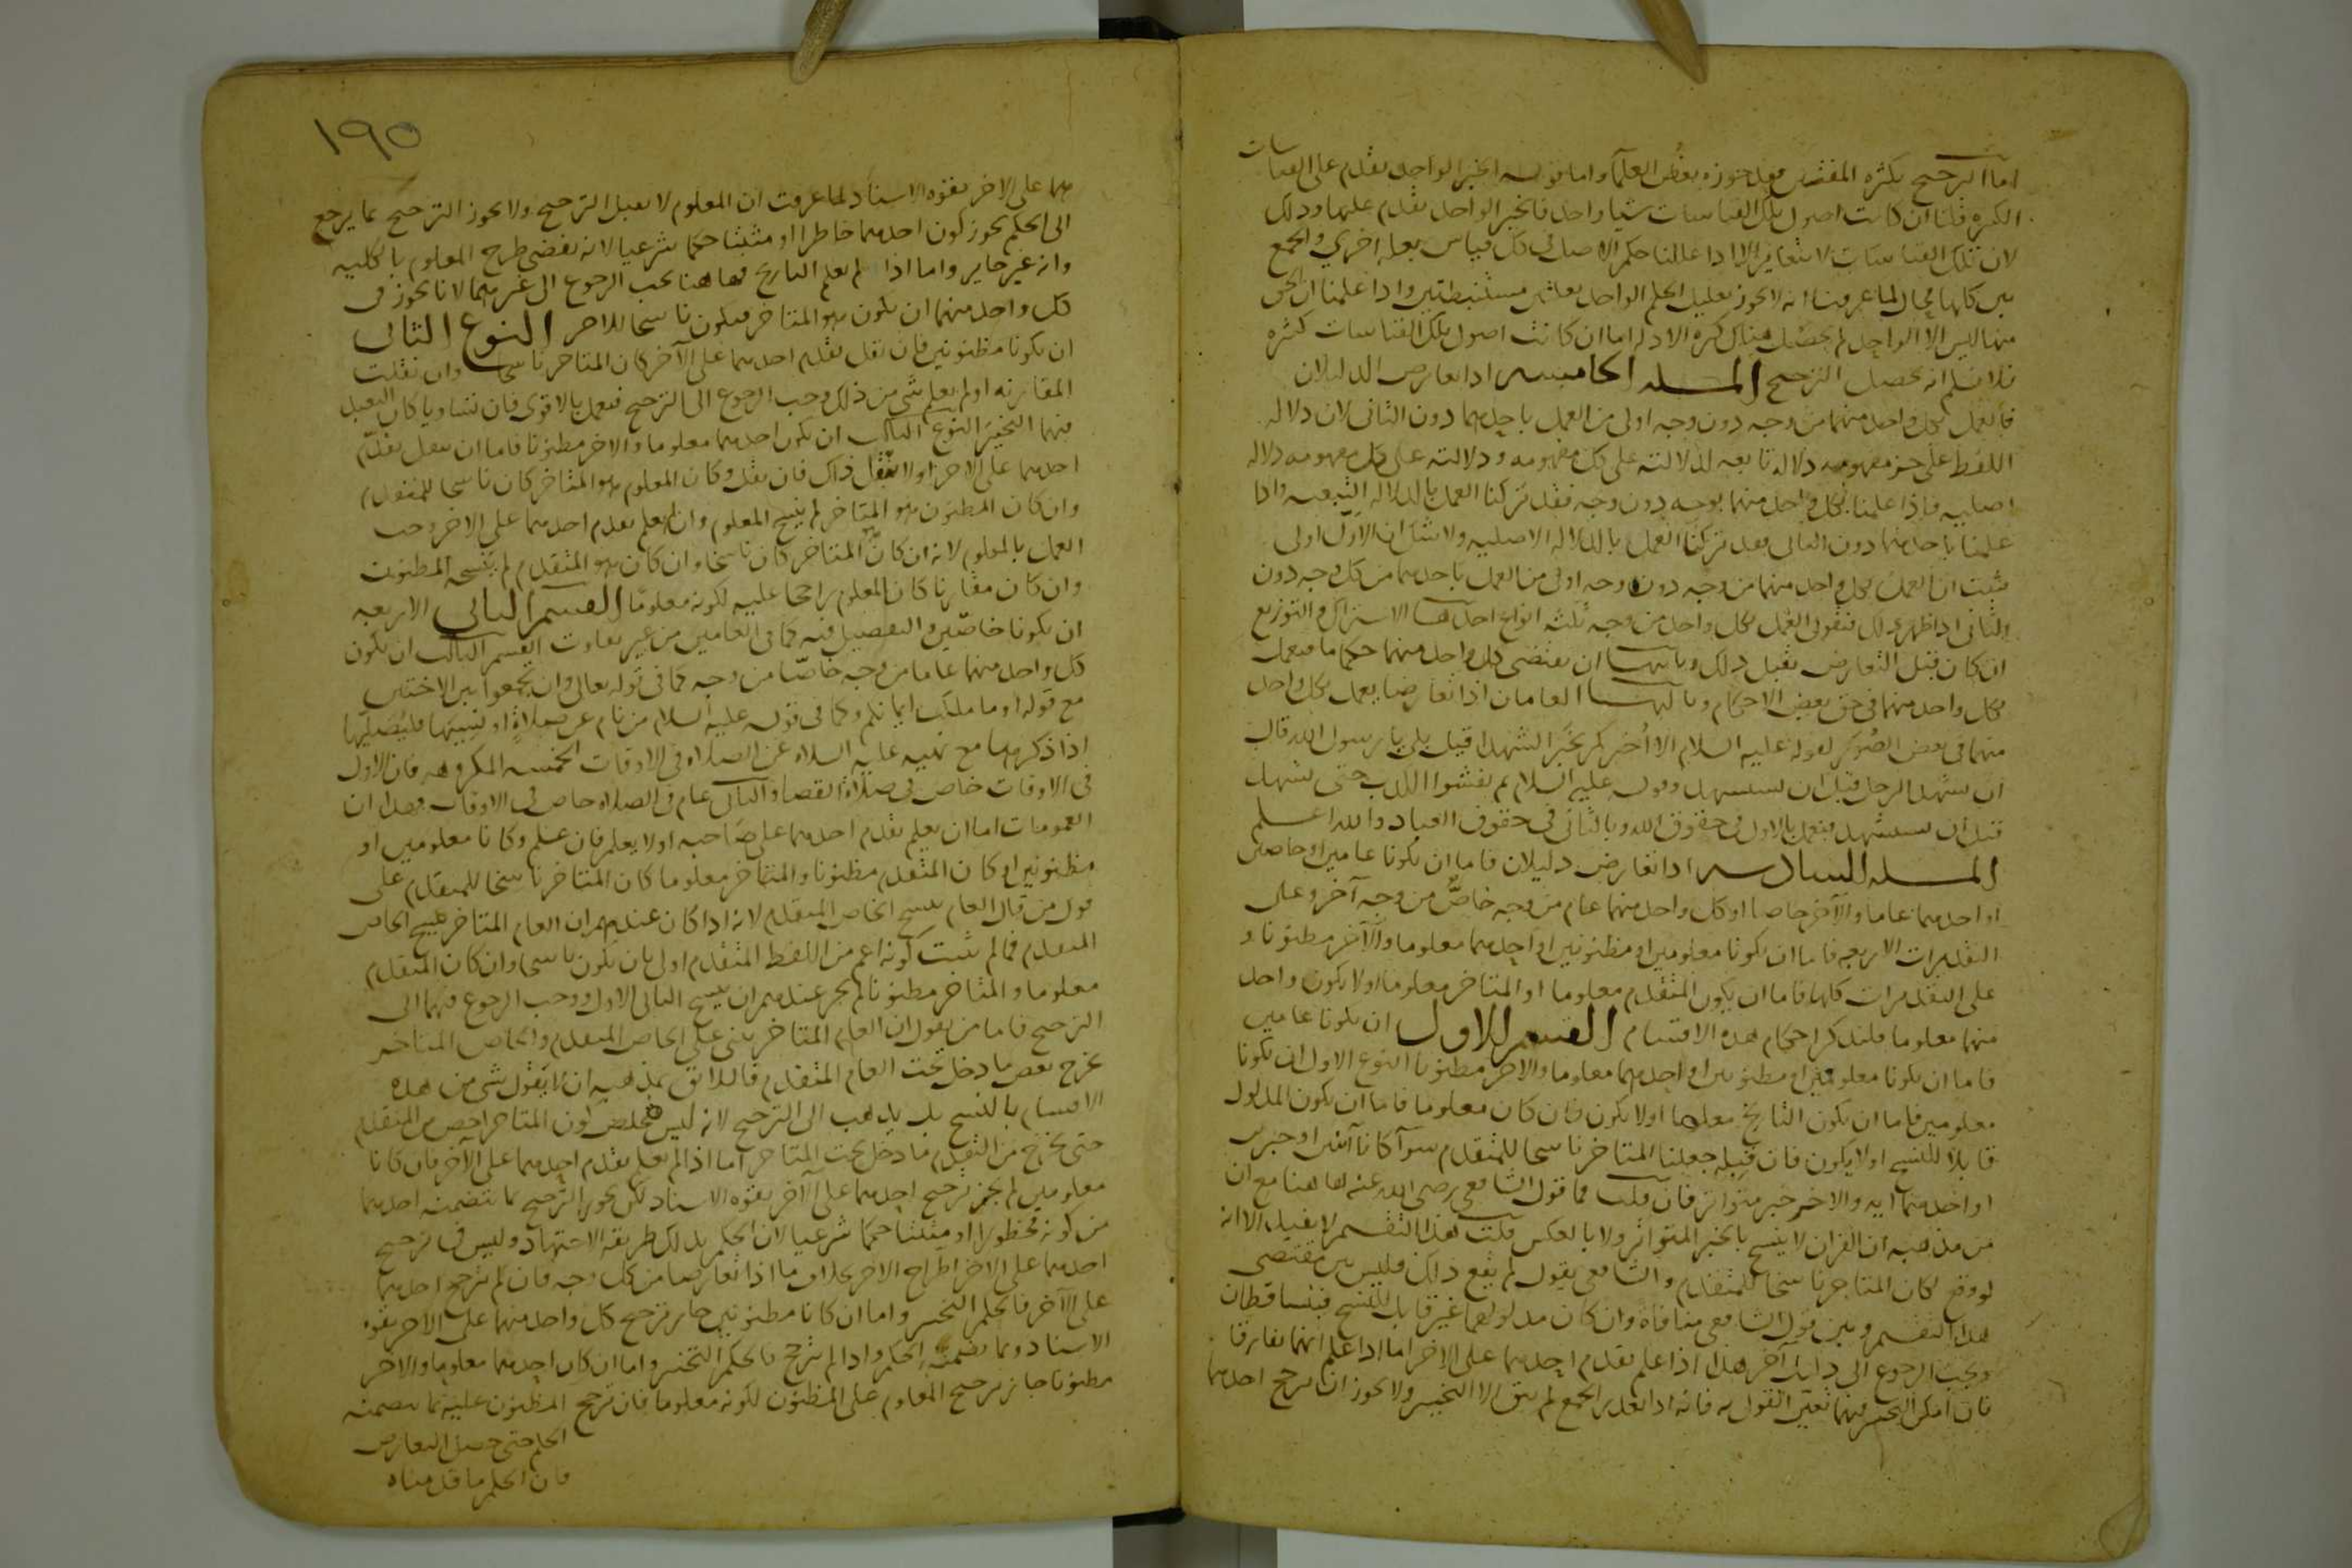 اما الترجيح بكثره المفتين فقد جوزه بعض العلما واما قوله الخبر الواحد يقدم على القياسات
الكثره قلنا ان كانت اصول تلك القياسات شيا واحدا فالخبر الواحد يقدم عليها وذلك
لان تلك القياسات لا تتغاير الا اذا عللنا حكم الاصل في كل قياس بعله اخرى والجمع
بين كلها محال لما عرفت انه لا يجوز تعليل الحكم الواحد بعلتين مستنبطتين واذا علمنا ان الحق
منها ليس الا الواحد لم يحصل هناك كثره الادله اما ان كانت اصول تلك القياسات كثيره
فلا نسلم انه يحصل الترجيح المسله الخامسه اذا تعارض الدليلان
فالعمل بكل واحد منهما من وجه دون وجه اولى من العمل باحدهما دون الثاني لان دلاله
اللفظ على جزء مفهومه دلاله تابعه لدلالته على كل مفهومه ودلالته على كل مفهومه دلاله
اصليه فاذا عملنا بكل واحد منهما بوجه دون وجه فقد تركنا العمل بالدلاله التبعيه واذا
عملنا باحدهما دون الثاني فقد تركنا العمل بالدلاله الاصليه ولا شك ان الاول اولى
فثبت ان العمل بكل واحد منهما من وجه دون وجه اولى من العمل باحدهما من كل وجه دون
الثاني اذا ظهر ذلك فنقول العمل بكل واحد من وجه ثلثه انواع احدها الاشتراك والتوزيع
ان كان قبل التعارض يقبل ذلك وثانيها ان يقتضي كل واحد منهما حكما ما فيعمل
بكل واحد منهما في حق بعض الاحكام وثالثها العامان اذا تعارضا يعمل بكل واحد
منهما في بعض الصور كقوله عليه السلام الا اخبركم بخير الشهدا قيل بلى يا رسول الله قال
ان يشهد الرجل قبل ان يستشهد وقوله عليه السلام ثم يفشوا الكذب حتى يشهد
قبل ان يستشهد فيعمل بالاول في حقوق الله وبالثاني في حقوق العباد والله اعلم
المسله السادسه اذا تعارض دليلان فاما ان يكونا عامين او خاصين
او احدهما عاما والآخر خاصا او كل واحد منهما عام من وجه خاص من وجه آخر وعلى
التقديرات الاربعه فاما ان يكونا معلومين او مظنونين او احدهما معلوما والآخر مظنونا و
على التقديرات كلها فاما ان يكون المتقدم معلوما او المتاخر معلوما او لا يكون واحد
منهما معلوما فلنذكر احكام هذه الاقسام القسم الاول ان يكونا عامين
فاما ان يكونا معلومين او مظنونين او احدهما معلوما والاخر مظنونا النوع الاول ان يكونا
معلومين فاما ان يكون التاريخ معلوما او لا يكون فان كان معلوما فاما ان يكون المدلول
قابلا للنسخ او لا يكون فان قبله جعلنا المتاخر ناسخا للمتقدم سوآ كانا آيتين او خبرين
او احدهما ايه والاخر خبر متواتر فان قلت فما قول الشافعي رضي الله عنه هاهنا مع ان
من مذهبه ان القران لا ينسخ بالخبر المتواتر ولا بالعكس قلت هذا التقسيم لا يفيد الا انه
لو وقع لكان المتاخر ناسخا للمتقدم والشافعي يقول لم يقع ذلك فليس بين مقتضى
هذا التقسيم وبين قول الشافعي منافاة وان كان مدلولهما غير قابل للنسخ فيتساقطان
ويجب الرجوع الى دليل آخر هذا اذا علم تقدم احدهما على الاخر اما اذا علم انهما تقارنا
فان امكن التخيير فيهما تعين القول به فانه اذا تعذر الجمع لم يبق الا التخيير ولا يجوز ان يرجح احدهما
١٩٥
هما على الاخر بقوه الاسناد لما عرفت ان المعلوم لا يقبل الترجيح ولا يجوز الترجيح بما يرجع
الى الحكم نحو كون احدهما حاظرا او مثبتا حكما شرعيا لانه يقتضي طرح المعلوم بالكليه
وانه غير جايز واما اذا لم يعلم التاريخ فهاهنا يجب الرجوع الى غيرهما لانا نجوز في
كل واحد منهما ان يكون هو المتاخر فيكون ناسخا للاخر النوع الثاني
ان يكونا مظنونين فان نقل تقدم احدهما على الآخر كان المتاخر ناسخا وان نقلت
المقارنه او لم يعلم شي من ذلك وجب الرجوع الى الترجيح فيعمل بالاقوى فان تساويا كان التعبد
فيهما التخيير النوع الثالث ان يكون احدهما معلوما والاخر مظنونا فاما ان ينقل تقدم
احدهما على الاخر او لا ينقل ذاك فان نقل وكان المعلوم هو المتاخر كان ناسخا للمتقدم
وان كان المظنون هو المتاخر لم ينسخ المعلوم وان لم يعلم تقدم احدهما على الاخر وجب
العمل بالمعلوم لانه ان كان هو المتاخر كان ناسخا وان كان هو المتقدم لم ينسخه المظنون
وان كان مقارنا كان المعلوم راجحا عليه لكونه معلوما القسم الثاني الاربعه
ان يكونا خاصين والتفصيل فيه كما في العامين من غير تفاوت القسم الثالث ان يكون
كل واحد منهما عاما من وجه خاصا من وجه كما في قوله تعالى وان تجمعوا بين الاختين
مع قوله او ما ملكت ايمانكم وكما في قوله عليه السلام من نام عن صلاة او نسيها فليصليها
اذا ذكرها مع نهيه عليه السلام عن الصلاه في الاوقات الخمسه المكروهه فان الاول عام
في الاوقات خاص في صلاة القضا والثاني عام في الصلاه خاص في الاوقات فهذان
العمومات اما ان يعلم تقدم احدهما على صاحبه او لا يعلم فان علم وكانا معلومين او
مظنونين او كان المتقدم مظنونا والمتاخر معلوما كان المتاخر ناسخا للمتقدم على
قول من قال العام ينسخ الخاص المتقدم لانه اذا كان عندهم ان العام المتاخر ينسخ الخاص
المتقدم فما لم يثبت كونه اعم من اللفظ المتقدم اولى بان يكون ناسخا وان كان المتقدم
معلوما والمتاخر مظنونا لم يجز عندهم ان ينسخ الثاني الاول ووجب الرجوع فيهما الى
الترجيح فاما من يقول ان العام المتاخر يبنى على الخاص المتقدم والخاص المتاخر
يخرج بعض ما دخل تحت العام المتقدم فاللائق بمذهبه ان لا يقول شي من هذه
الاقسام بالنسخ بل يذهب الى الترجيح لانه ليس يخلص كون المتاخر اخص من المتقدم
حتى يخرج من المتقدم ما دخل تحت المتاخر اما اذا لم يعلم تقدم احدهما على الآخر فان كانا
معلومين لم يجز ترجيح احدهما على الآخر بقوه الاسناد لكن يجوز الترجيح بما يتضمنه احدهما
من كونه محظورا او مثبتا حكما شرعيا لان الحكم بذلك طريقه الاجتهاد وليس في ترجيح
احدهما على الاخر اطراح الاخر بخلاف ما اذا تعارضا من كل وجه فان لم يترجح احدهما
على الآخر فالحكم التخيير واما ان كانا مظنونين جاز ترجيح كل واحد منهما على الاخر بقوه
الاسناد وبما يتضمنه الحكم واذا لم يترجح فالحكم التخيير واما ان كان احدهما معلوما والاخر
مظنونا جاز ترجيح المعلوم على المظنون لكونه معلوما فان ترجح المظنون عليه بما يتضمنه
الحكم حتى حصل التعارض
فان الحكم ما قدمناه